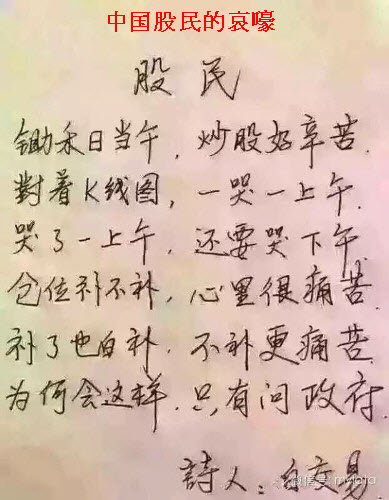 中国股民的哀嚎
股民
锄禾日当午，炒股好辛苦.
對着K线图，一哭一上午.
哭了一上午，还要哭下午.
仓位补不补，心里很痛苦.
补了也白补.不补更痛苦.
为何会这样.只有问政府.
詩人：白交易